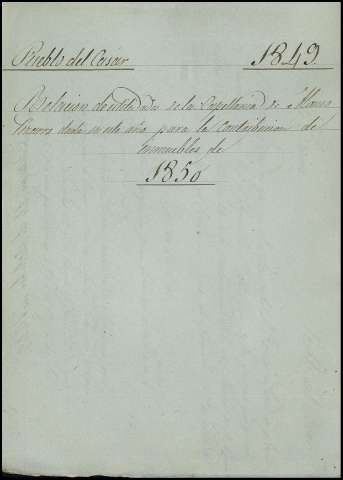 Pueblo del Casar 1849.
Relacion de utilidades de la Capellania de Mann
dada en este año para la contribucion de
Ynmuebles de
1850